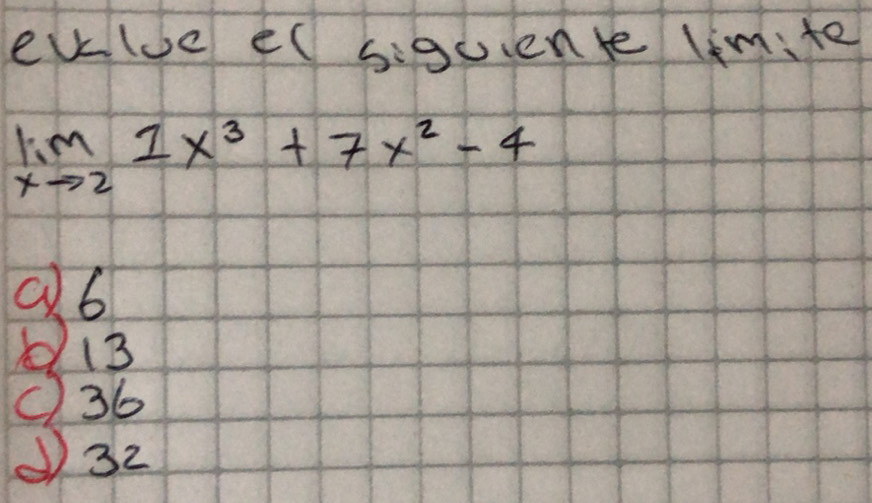 evalue el siguiente límite
lim 1x³ + 7x² - 4
x→2
a) 6
b) 13
c) 36
d) 32